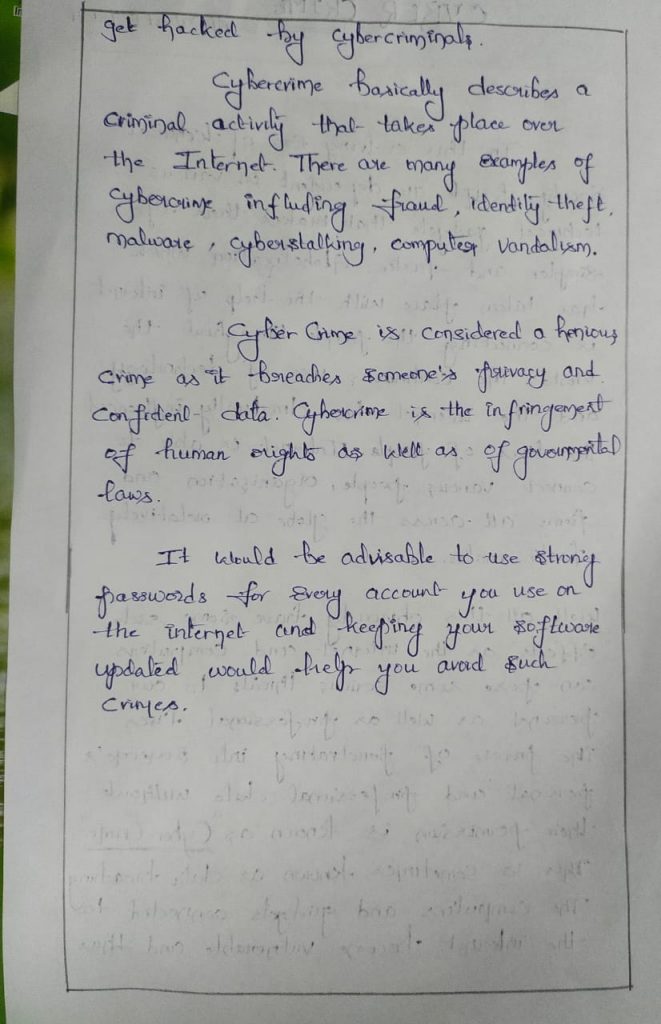 get hacked by cybercriminals.
Cybercrime basically describes a
criminal activity that takes place over
the Internet. There are many examples of
cybercrime including fraud, identity theft,
malware, cyberstalking, computer vandalism.
Cyber Crime is considered a henious
crime as it breaches someone's privacy and
confident data. Cybercrime is the infringement
of human rights as well as of governmental
laws.
It would be advisable to use strong
passwords for every account you use on
the internet and keeping your software
updated would help you avoid such
crimes.